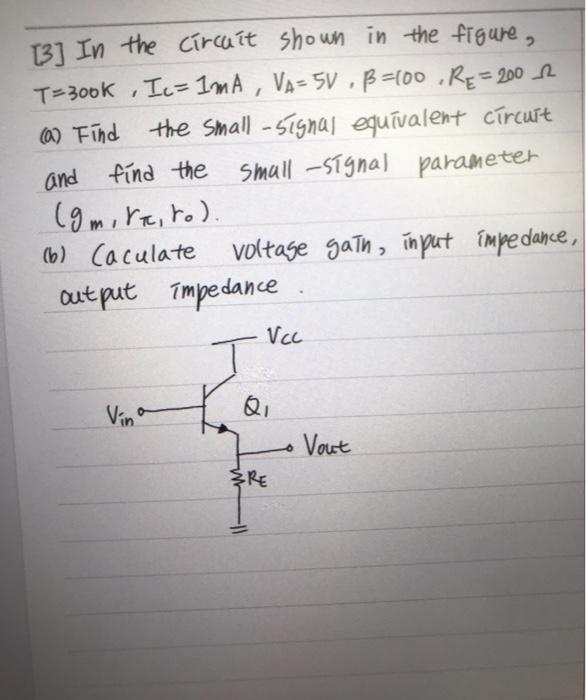 [3] In the circuit shown in the figure,
T=300K, Ic=1mA, VA=5V, β=100, RE=200Ω
(a) Find the small-signal equivalent circuit
and find the small-signal parameter
(gm, rπ, ro).
(b) Caculate voltage gain, input impedance,
output impedance.
Vcc
Vin
Q1
Vout
RE